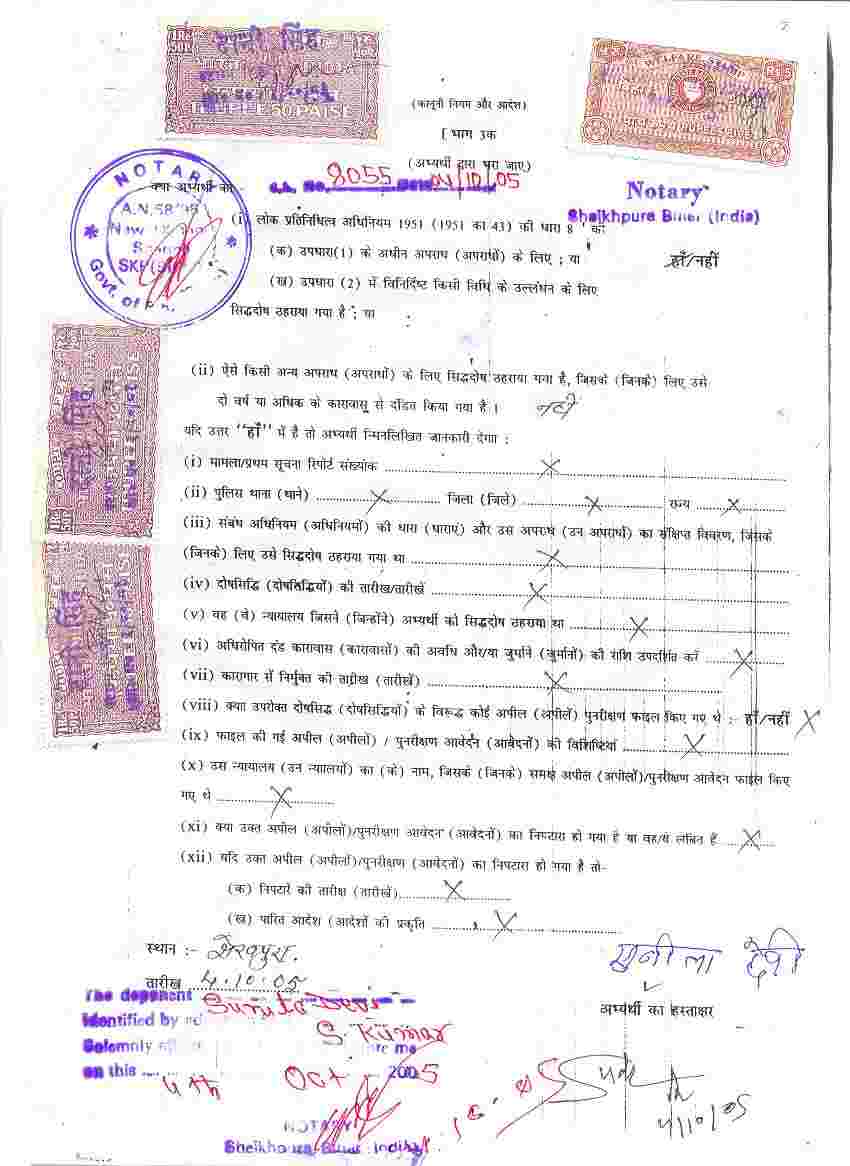 1Re 50P
हानी सिंह
RUPEE 50 PAISE
WELFARE STAMP
(कानूनी नियम और आदेश)
[ भाग 3क
(अभ्यर्थी द्वारा भरा जाए)
NOTARY
क्या अभ्यर्थी को -
S.A. No. 8055 Date 04/10/05
Notary
Sheikhpura Bihar (India)
Govt. of
(i) लोक प्रतिनिधित्व अधिनियम 1951 (1951 का 43) की धारा 8 की
(क) उपधारा(1) के अधीन अपराध (अपराधों) के लिए ; या हाँ/नहीं
(ख) उपधारा (2) में विनिर्दिष्ट किसी विधि के उल्लंघन के लिए
सिद्धदोष ठहराया गया है ; या
(ii) ऐसे किसी अन्य अपराध (अपराधों) के लिए सिद्धदोष ठहराया गया है, जिसके (जिनके) लिए उसे
दो वर्ष या अधिक के कारावास से दंडित किया गया है । नहीं
यदि उत्तर "हाँ" में है तो अभ्यर्थी निम्नलिखित जानकारी देगा :
(i) मामला/प्रथम सूचना रिपोर्ट संख्यांक .......... X
(ii) पुलिस थाना (थाने) .......... X .......... जिला (जिले) .......... X .......... राज्य .......... X
(iii) संबंध अधिनियम (अधिनियमों) की धारा (धाराएं) और उस अपराध (उन अपराधों) का संक्षिप्त विवरण, जिसके
(जिनके) लिए उसे सिद्धदोष ठहराया गया था .......... X
(iv) दोषसिद्धि (दोषसिद्धियों) की तारीख/तारीखें .......... X
(v) वह (वे) न्यायालय जिसने (जिन्होंने) अभ्यर्थी को सिद्धदोष ठहराया था .......... X
(vi) अधिरोपित दंड कारावास (कारावासों) की अवधि और/या जुर्माने (जुर्मानों) की राशि उपदर्शित करें .......... X
(vii) कारागार से निर्मुक्त की तारीख (तारीखें) .......... X
(viii) क्या उपरोक्त दोषसिद्ध (दोषसिद्धियों) के विरुद्ध कोई अपील (अपीलें) पुनरीक्षण फाइल किए गए थे :- हाँ/नहीं X
(ix) फाइल की गई अपील (अपीलों) / पुनरीक्षण आवेदन (आवेदनों) की विशिष्टियां .......... X
(x) उस न्यायालय (उन न्यालयों) का (के) नाम, जिसके (जिनके) समक्ष अपील (अपीलों)/पुनरीक्षण आवेदन फाइल किए
गए थे .......... X
(xi) क्या उक्त अपील (अपीलों)/पुनरीक्षण आवेदन (आवेदनों) का निपटारा हो गया है या वह/वे लंबित हैं .......... X
(xii) यदि उक्त अपील (अपीलों)/पुनरीक्षण (आवेदनों) का निपटारा हो गया है तो-
(क) निपटारे की तारीख (तारीखें).......... X
(ख) पारित आदेश (आदेशों की प्रकृति .......... X
स्थान :- शेखपुरा
तारीख 4.10.05
सुनीला देवी
अभ्यर्थी का हस्ताक्षर
The deponent Sunila Devi
Identified by S. Kumar
Solemnly before me
on this 4th Oct 2005
NOTARY
Sheikhpura Bihar India
4/10/05